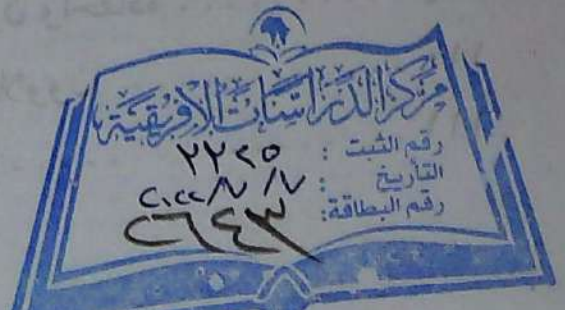 مركز الدراسات الأفريقية
رقم الثبت : ٢٢٢٥
التأريخ : ٧/٧/٢٠٢٢
رقم البطاقة: ٢٦٤٣